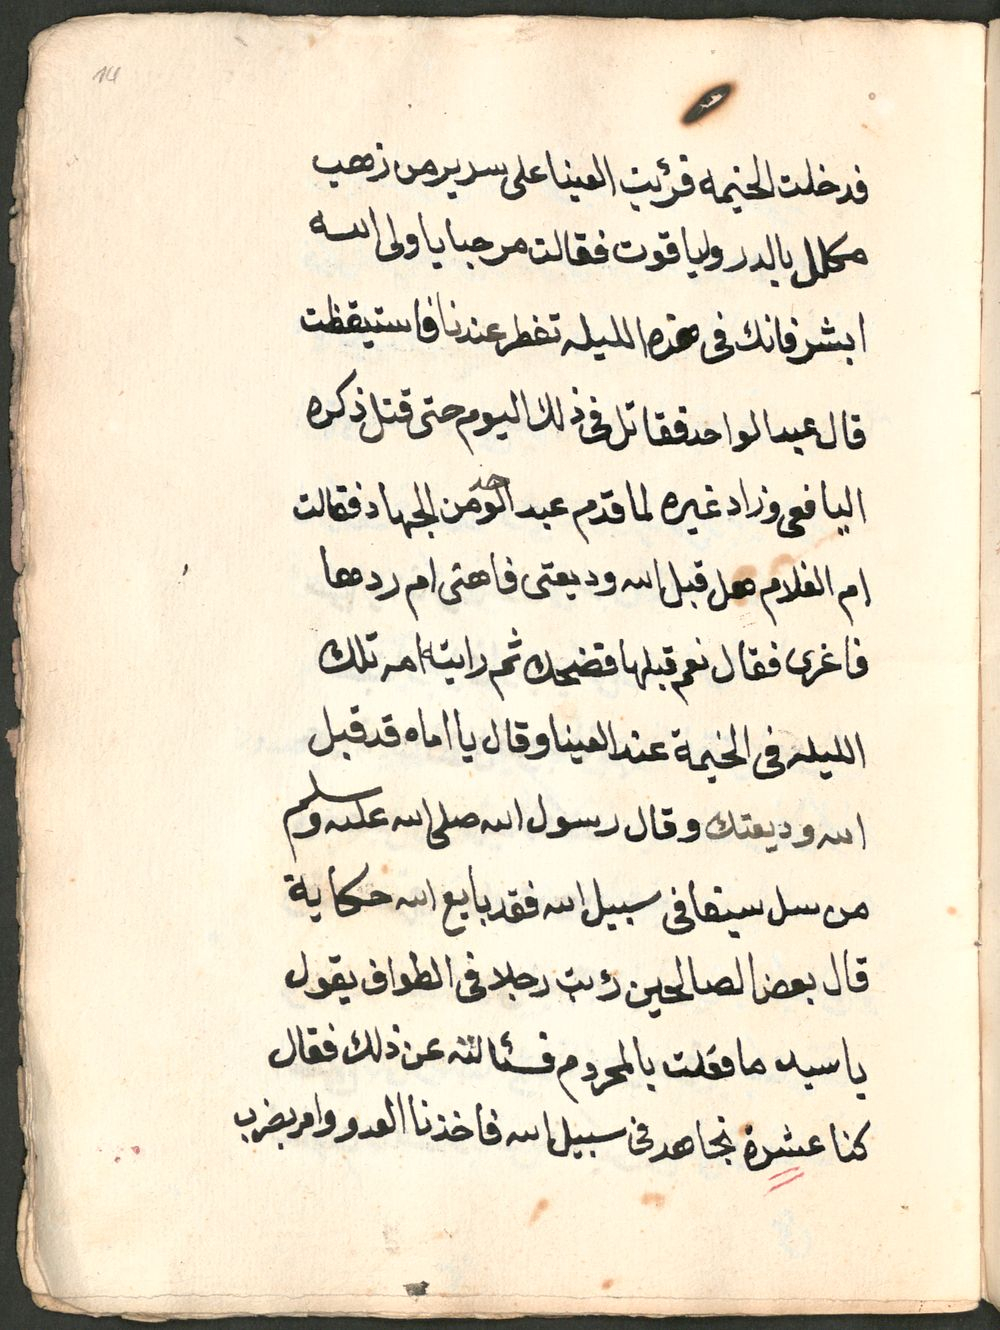 14
فدخلت الخيمه فرئيت العينا على سرير من ذهب
مكلل بالدر وليا قوت فقالت مرحبا يا ولى الله
ابشر فانك فى هذه الليله تفطر عندنا فاستيقظت
قال عبد الواحد فقاتل فى ذلك اليوم حتى قتل ذكره
اليافعى وزاد غيره لما قدم عبد الوحد من الجهاد فقالت
ام الغلام هل قبل الله وديعتى فاهنى ام ردها
فاغرى فقال نعم قبلها فضحك ثم رايته امه تلك
الليله فى الخيمة عند العينا وقال يا اماه قد قبل
الله وديعتك وقال رسول الله صلى الله عليه وسلم
من سل سيفا فى سبيل الله فقد بايع الله حكاية
قال بعض الصالحين رئيت رجلا فى الطواف يقول
يا سيد ما فقلت بالمحروم فسئالته عن ذلك فقال
كنا عشرة نجاهد فى سبيل الله فاخذنا العدو وامر بضرب